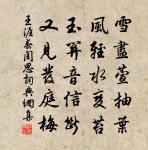 雪盡萱抽葉
風輕水變苔
玉關音信斷
又見發庭梅
王涯春閨思詞典網集